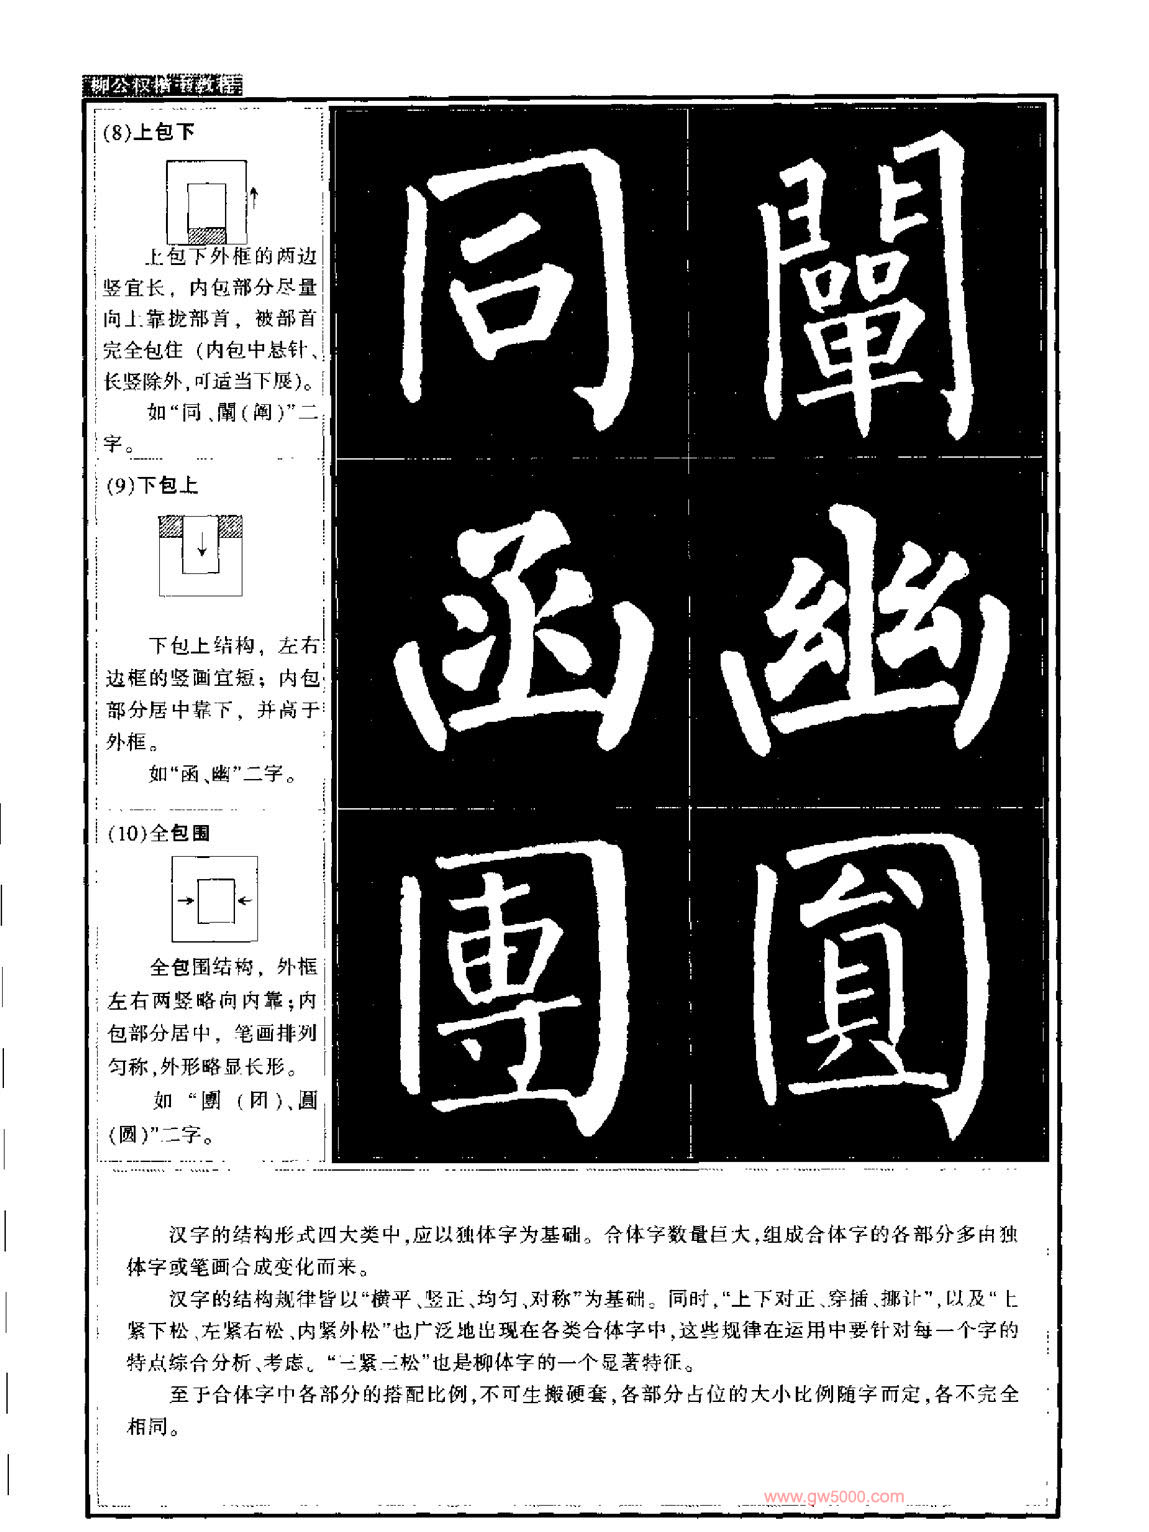 柳公权楷书教程
(8)上包下
上包下外框的两边
竖宜长，内包部分尽量
向上靠拢部首，被部首
完全包住（内包中悬针、
长竖除外,可适当下展)。
如“同、闡(阐)”二
字。
同 闡
(9)下包上
下包上结构，左右
边框的竖画宜短；内包
部分居中靠下，并高于
外框。
如“函、幽”二字。
函 幽
(10)全包围
全包围结构，外框
左右两竖略向内靠;内
包部分居中，笔画排列
匀称,外形略显长形。
如“團（团）、圓
(圆)”二字。
團 圓
汉字的结构形式四大类中,应以独体字为基础。合体字数量巨大,组成合体字的各部分多由独
体字或笔画合成变化而来。
汉字的结构规律皆以“横平、竖正、均匀、对称”为基础。同时,“上下对正、穿插、挪让”,以及“上
紧下松、左紧右松、内紧外松”也广泛地出现在各类合体字中,这些规律在运用中要针对每一个字的
特点综合分析、考虑。“三紧三松”也是柳体字的一个显著特征。
至于合体字中各部分的搭配比例,不可生搬硬套,各部分占位的大小比例随字而定,各不完全
相同。
www.gw5000.com